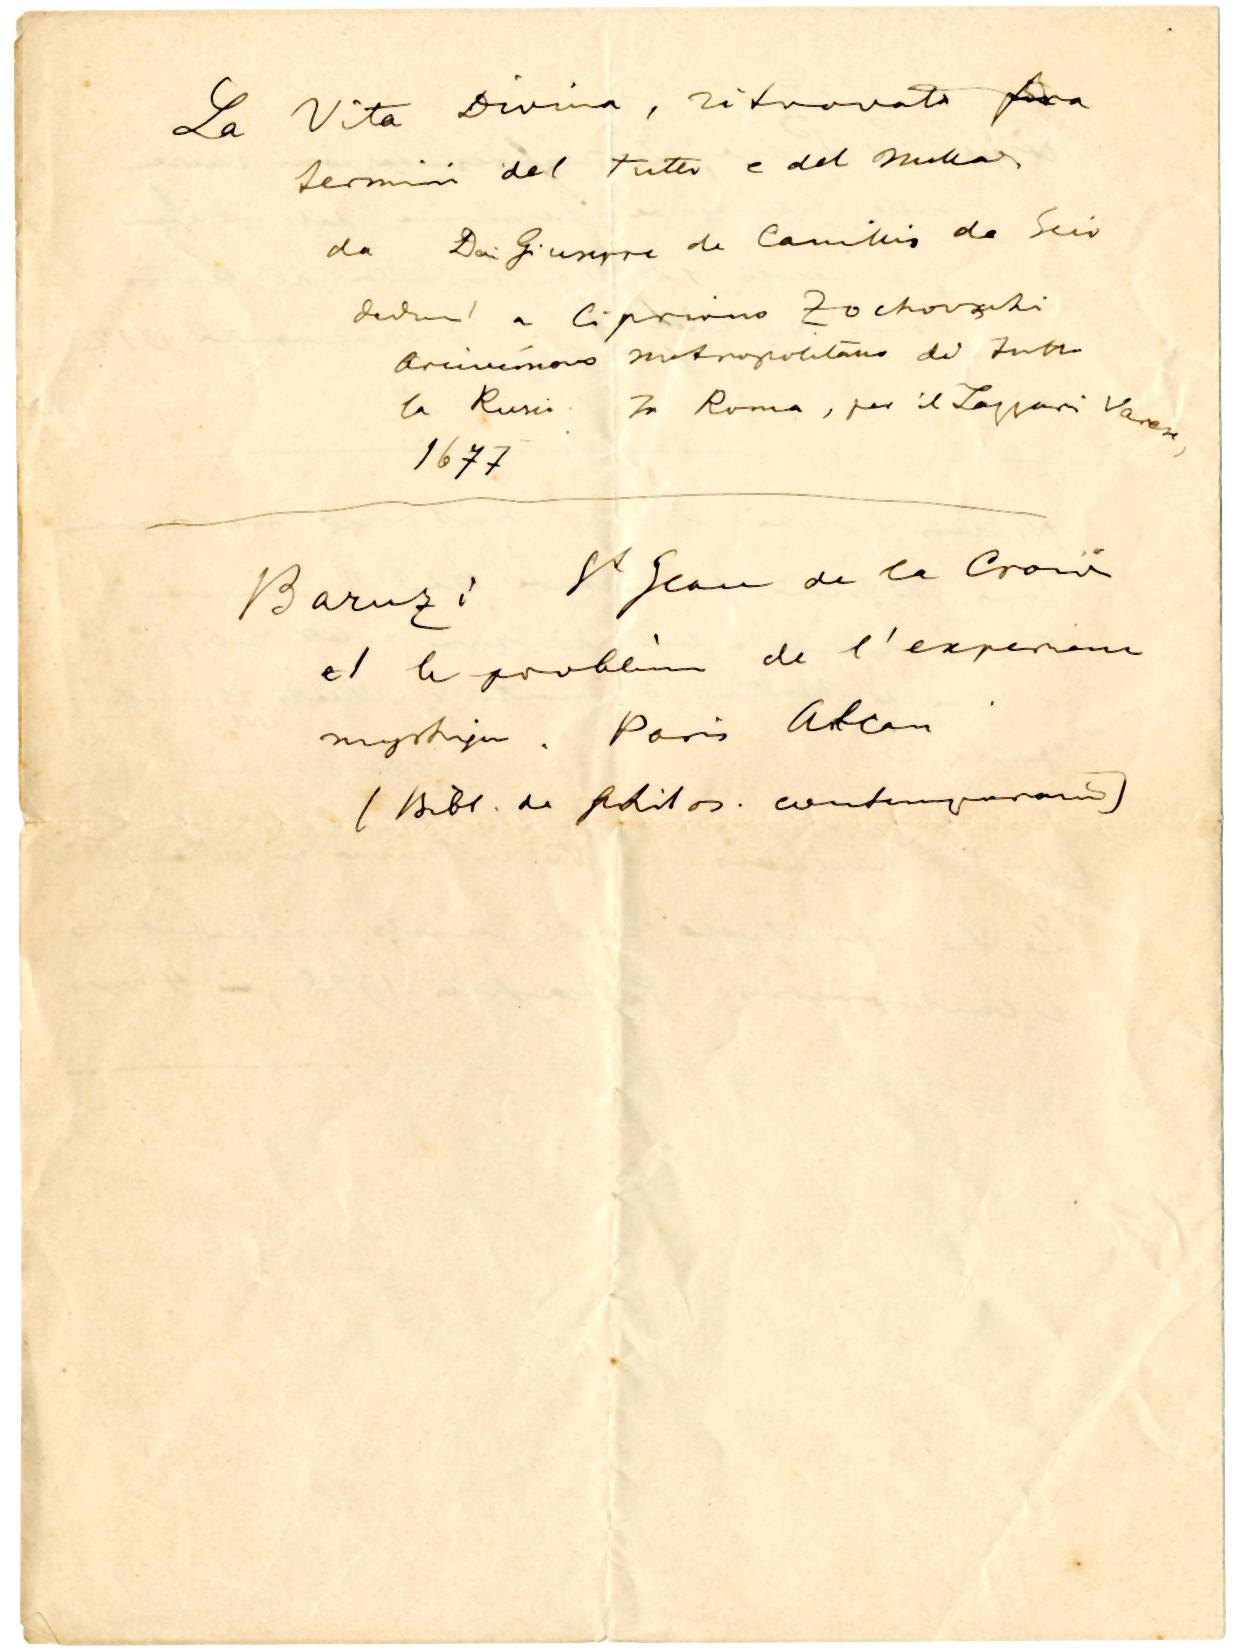 La Vita Divina, ritrovata fra
termini del tutto e del nulla
da Don Giuseppe de Camillis da Scio
a Cipriano Zochovschi
Arcivescovo metropolitano di tutta
la Russia. In Roma, per il Varese,
1677
Baruzi St Jean de la Croix
et le problème de l'experience
mystique. Paris Alcan
(Bibl. de philos. contemporaine)